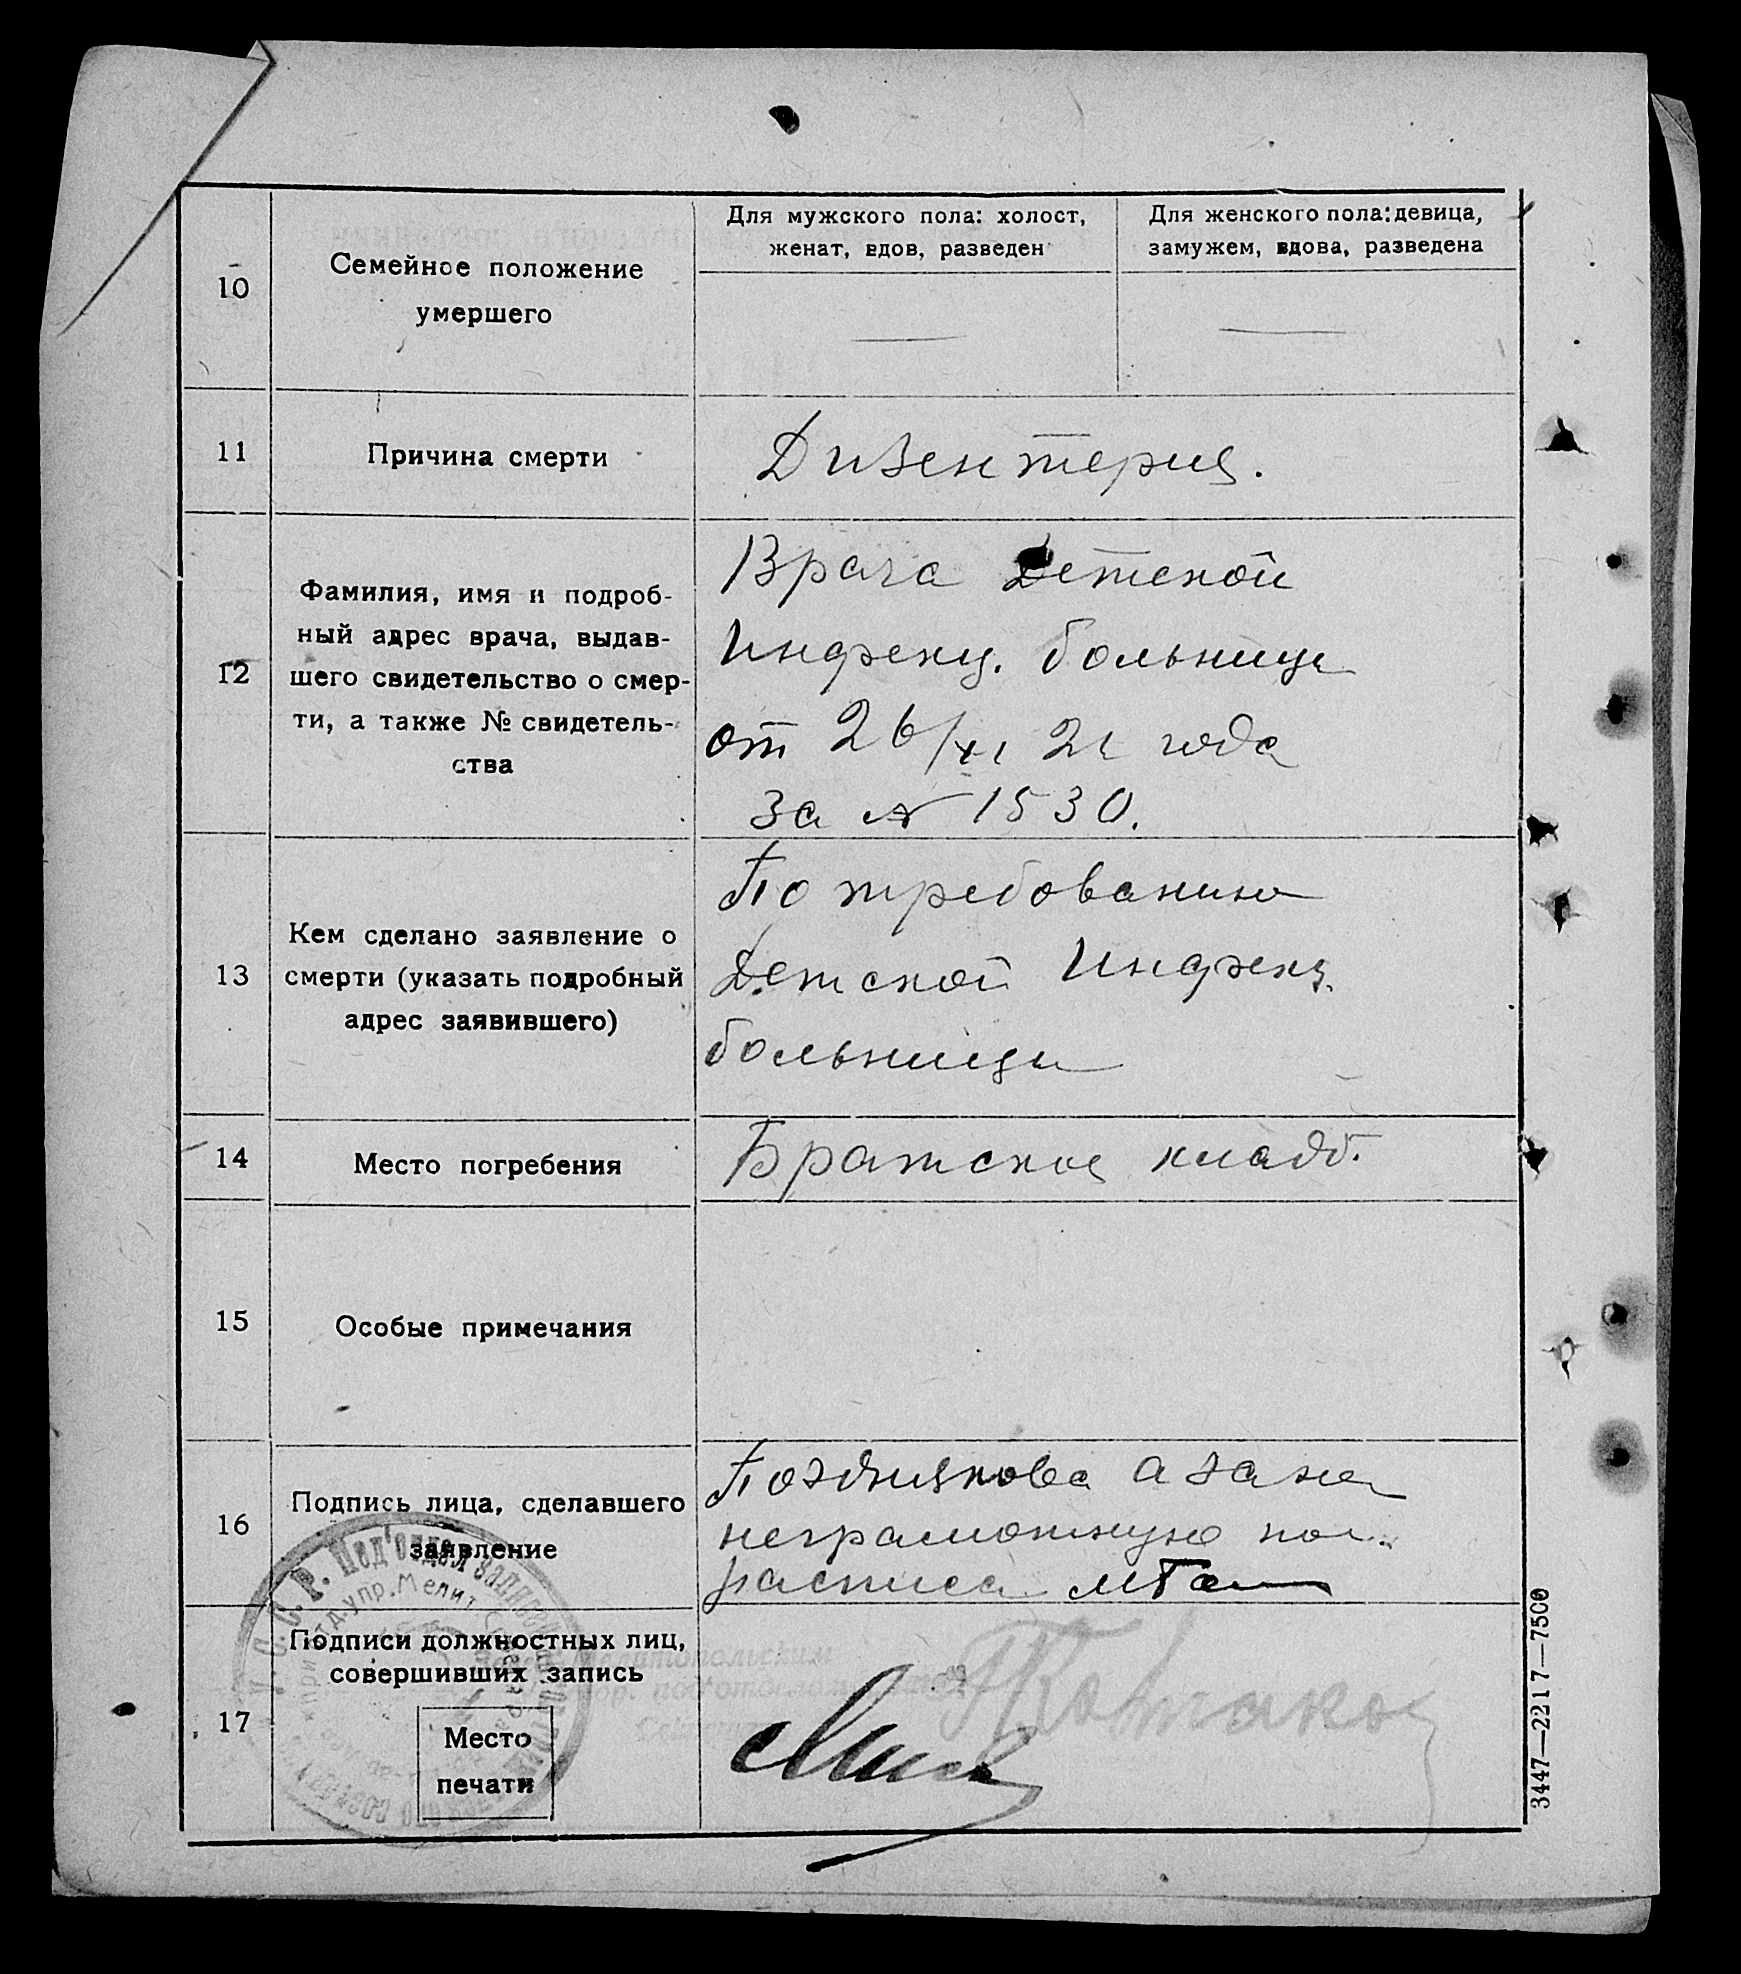 10
Семейное положение
умершего
Для мужского пола: холост,
женат, вдов, разведен
Для женского пола: девица,
замужем, вдова, разведена
11
Причина смерти
Дизентерия.
12
Фамилия, имя и подроб-
ный адрес врача, выдав-
шего свидетельство о смер-
ти, а также № свидетель-
ства
Врача Детской
Инфекц. больницы
от 26/XI 21 года
за № 1530.
13
Кем сделано заявление о
смерти (указать подробный
адрес заявившего)
По требованию
Детской Инфекц.
больницы
14
Место погребения
Братское кладб.
15
Особые примечания
16
Подпись лица, сделавшего
заявление
Позднякова а за нее
неграмотную
17
Подписи должностных лиц,
совершивших запись
Место
печати
3447—2217—7500